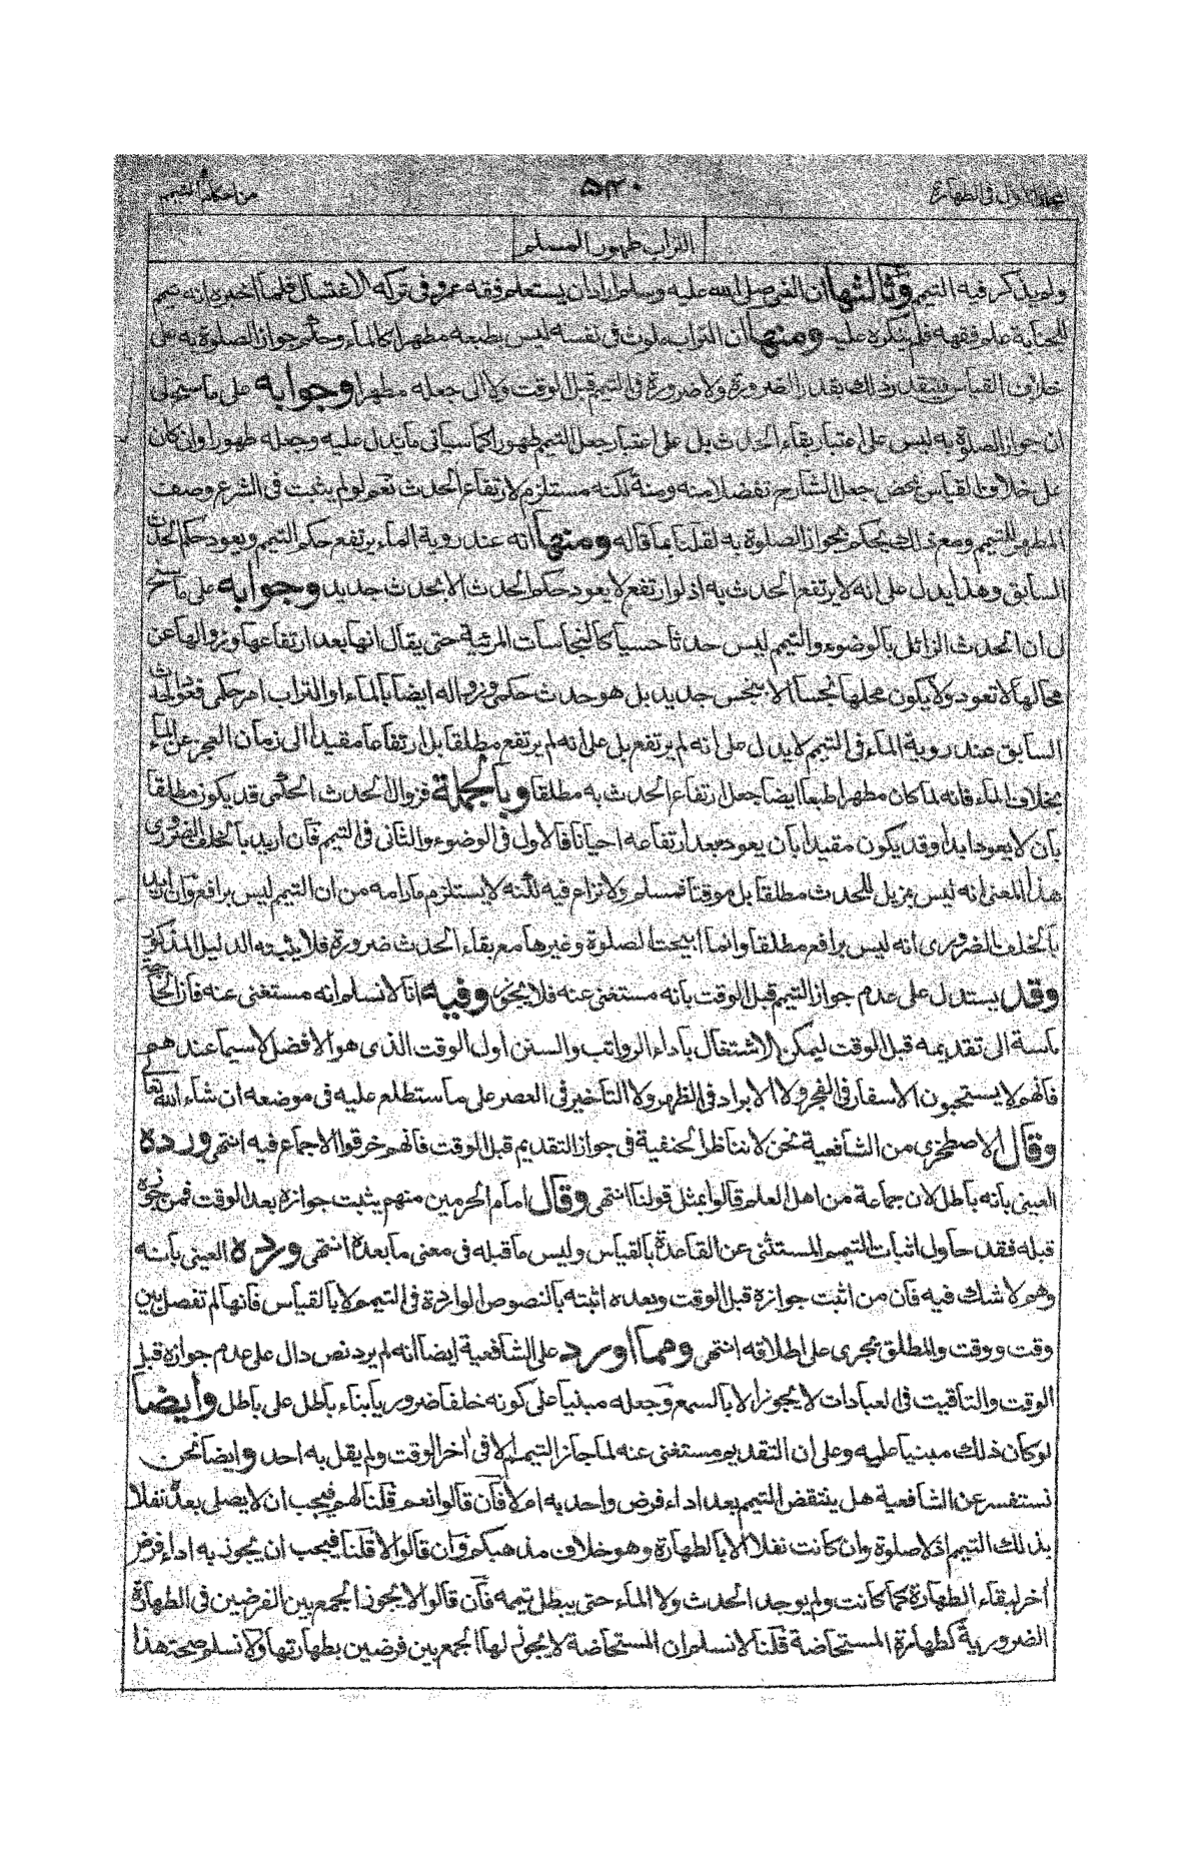 المجلد الاول فى الطهارة ٥٣٠ من احكام التيمم
التراب طهور المسلم
ولم يذكر فيه التيمم وثالثها ان النبى صلى الله عليه وسلم اراد ان يستعلم فقه عمرو فى تركه الاغتسال فلما اخبره انه تيمم
للجنابة علم فقهه فلم ينكره عليه ومنها ان التراب ملوث فى نفسه ليس بطبعه مطهرا كالماء وحكم جواز الصلوة به على
خلاف القياس فيتقدر ذلك بقدر الضرورة ولا ضرورة فى التيمم قبل الوقت ولا الى جعله مطهرا وجوابه على ما سنح لى
ان جواز الصلوة به ليس على اعتبار بقاء الحدث بل على اعتبار جعل التيمم طهورا كما سياتى ما يدل عليه وجعله طهورا وان كان
على خلاف القياس بمحض جعل الشارح تفضلا منه ومنة لكنه مستلزم لارتفاع الحدث نعم لو لم يثبت فى الشرع وصف
المطهر للتيمم ومع ذلك يحكم بجواز الصلوة به لقلنا بما قاله ومنها انه عند روية الماء يرتفع حكم التيمم ويعود حكم الحدث
السابق وهذا يدل على انه لا يرتفع الحدث به اذ لو ارتفع لا يعود حكم الحدث الا بحدث جديد وجوابه على ما سنح
لى ان الحدث الزائل بالوضوء والتيمم ليس حدثا حسيا كالنجاسات المرئية حتى يقال انها بعد ارتفاعها وزوالها عن
محالها لا تعود ولا يكون محلها نجسا الا بنجس جديد بل هو حدث حكمى وزواله ايضا بالماء او التراب امر حكمى فعود الحدث
السابق عند روية الماء فى التيمم لا يدل على انه لم يرتفع بل على انه لم يرتفع مطلقا بل ارتفاعا مقيدا الى زمان العجز عن الماء
بخلاف الماء فانه لما كان مطهرا طبعا ايضا جعل ارتفاع الحدث به مطلقا وبالجملة فزوال الحدث الحكمى قد يكون مطلقا
بان لا يعود ابدا وقد يكون مقيدا بان يعود بعد ارتفاعه احيانا فالاول فى الوضوء والثانى فى التيمم فان اريد بالخلف الضرورى
هذا المعنى انه ليس بمزيل للحدث مطلقا بل موقتا فمسلم ولا نزاع فيه لكنه لا يستلزم ما رامه من ان التيمم ليس برافع وان اريد
بالخلف الضرورى انه ليس برافع مطلقا وانما ابيحت الصلوة وغيرها مع بقاء الحدث ضرورة فلا يثبته الدليل المذكور
وقد يستدل على عدم جواز التيمم قبل الوقت بانه مستغنى عنه فلا يجوز وفيه انا لا نسلم انه مستغنى عنه فان الحاجة
ماسة الى تقديمه قبل الوقت ليمكن الاشتغال باداء الرواتب والسنن اول الوقت الذى هو الافضل لا سيما عندهم
فانهم لا يستحبون الاسفار فى الفجر ولا الابراد فى الظهر ولا التاخير فى العصر على ما ستطلع عليه فى موضعه ان شاء الله تعالى
وقال الاصطخرى من الشافعية نحن لا نناظر الحنفية فى جواز التقديم قبل الوقت فانهم خرقوا الاجماع فيه انتهى ورده
العينى بانه باطل لان جماعة من اهل العلم قالوا بمثل قولنا انتهى وقال امام الحرمين منهم يثبت جوازه بعد الوقت فمن جوزه
قبله فقد حاول اثبات التيمم المستثنى عن القاعدة بالقياس وليس ما قبله فى معنى ما بعده انتهى ورده العينى بانه
وهم لا شك فيه فان من اثبت جوازه قبل الوقت وبعده اثبته بالنصوص الواردة فى التيمم لا بالقياس فانها لم تفصل بين
وقت ووقت والمطلق يجرى على اطلاقه انتهى ومما اورد على الشافعية ايضا انه لم يرد نص دال على عدم جوازه قبل
الوقت والتاقيت فى العبادات لا يجوز الا بالسمع وجعله مبنيا على كونه خلفا ضروريا بناء باطل على باطل وايضا
لو كان ذلك مبنيا عليه وعلى ان التقديم مستغنى عنه لما جاز التيمم الا فى اخر الوقت ولم يقل به احد وايضا نحن
نستفسر عن الشافعية هل ينتقض التيمم بعد اداء فرض واحد به ام لا فان قالوا نعم قلنا لهم فيجب ان لا يصلى بعده نفلا
بذلك التيمم اذ لا صلوة وان كانت نفلا الا بالطهارة وهو خلاف مذهبكم وان قالوا لا قلنا فيجب ان يجوز به اداء فرض
اخر لبقاء الطهارة كما كانت ولم يوجد الحدث ولا الماء حتى يبطل تيممه فان قالوا لا يجوز الجمع بين الفرضين فى الطهارة
الضرورية كطهارة المستحاضة قلنا لا نسلم ان المستحاضة لا يجوز لها الجمع بين فرضين بطهارتها ولا نسلم صحة هذا